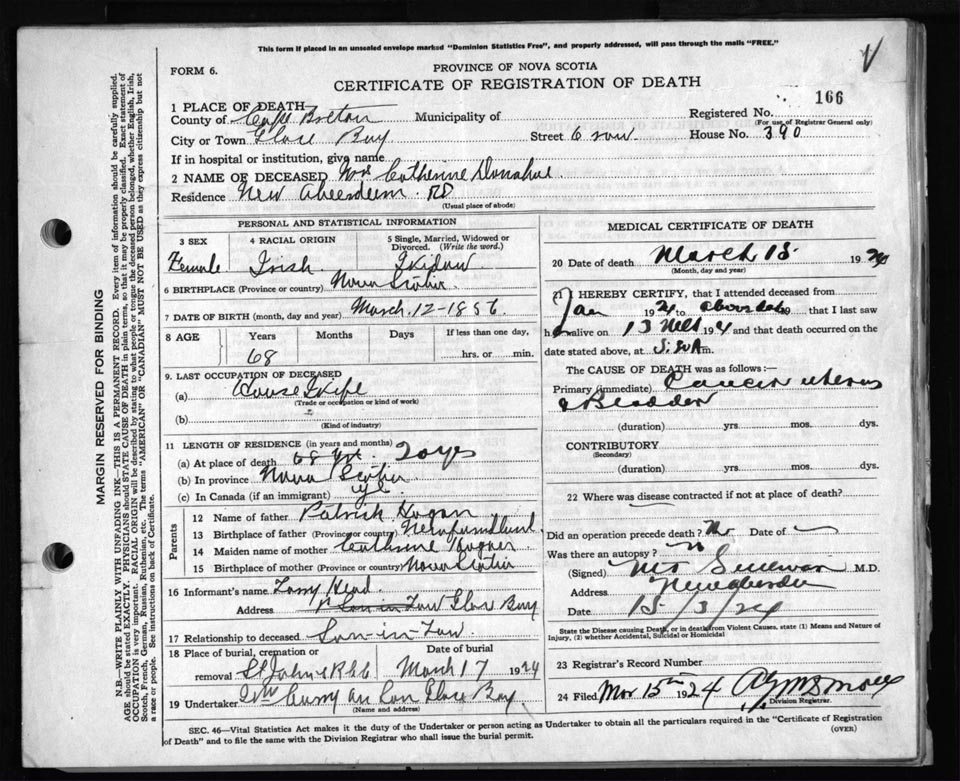 This form if placed in an unsealed envelope marked "Dominion Statistics Free", and properly addressed, will pass through the mails "FREE."
FORM 6.
PROVINCE OF NOVA SCOTIA
CERTIFICATE OF REGISTRATION OF DEATH
166
1 PLACE OF DEATH
County of Cape Breton Municipality of Registered No.
(For use of Registrar General only)
City or Town Glace Bay Street 6 row House No. 390
If in hospital or institution, give name
2 NAME OF DECEASED Catherine Donahue
Residence New Aberdeen
(Usual place of abode)
PERSONAL AND STATISTICAL INFORMATION
3 SEX 4 RACIAL ORIGIN 5 Single, Married, Widowed or Divorced. (Write the word.)
Female Irish Widow
6 BIRTHPLACE (Province or country) Nova Scotia
7 DATE OF BIRTH (month, day and year) March 12-1856
8 AGE Years Months Days If less than one day,
68 hrs. or min.
9. LAST OCCUPATION OF DECEASED
(a) House Wife
(Trade or occupation or kind of work)
(b)
(Kind of industry)
11 LENGTH OF RESIDENCE (in years and months)
(a) At place of death 68 yrs
(b) In province Nova Scotia
(c) In Canada (if an immigrant)
Parents
12 Name of father Patrick Hogan
13 Birthplace of father (Province or country) Newfoundland
14 Maiden name of mother Catherine
15 Birthplace of mother (Province or country) Nova Scotia
16 Informant's name Head
Address Son-in-Law Glace Bay
17 Relationship to deceased Son-in-Law
18 Place of burial, cremation or removal Date of burial
St John March 17 1924
19 Undertaker Curry Glace Bay
(Name and address)
MEDICAL CERTIFICATE OF DEATH
20 Date of death March 15 192
(Month, day and year)
21 I HEREBY CERTIFY, that I attended deceased from
Jan 1924 to above date 19 that I last saw
h alive on 13 192 and that death occurred on
date stated above, at m.
The CAUSE OF DEATH was as follows:—
Primary (immediate) Cancer uterus
& Bladder
(duration) yrs. mos. dys.
CONTRIBUTORY
(Secondary)
(duration) yrs. mos. dys.
22 Where was disease contracted if not at place of death?
Did an operation precede death? No Date of
Was there an autopsy?
(Signed) M.D.
Address New Aberdeen
Date 15/3/24
State the Disease causing Death, or in death from Violent Causes, state (1) Means and Nature of Injury, (2) whether Accidental, Suicidal or Homicidal
23 Registrar's Record Number
24 Filed Mar 15th 1924
Division Registrar.
SEC. 46—Vital Statistics Act makes it the duty of the Undertaker or person acting as Undertaker to obtain all the particulars required in the "Certificate of Registration of Death" and to file the same with the Division Registrar who shall issue the burial permit.
(OVER)
MARGIN RESERVED FOR BINDING
N.B.—WRITE PLAINLY WITH UNFADING INK—THIS IS A PERMANENT RECORD. Every item of information should be carefully supplied.
AGE should be stated EXACTLY. PHYSICIANS should STATE CAUSE OF DEATH in plain terms, so that it may be properly classified. Exact statement of
OCCUPATION is very important. RACIAL ORIGIN will be described by stating to what people or tongue the deceased person belonged, whether English, Irish,
Scotch, French, German, Russian, Ruthenian, etc. The terms "AMERICAN" OR "CANADIAN" MUST NOT BE USED as they express citizenship but not
a race or people. See instructions on back of Certificate.